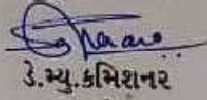 ડે.મ્યુ.કમિશનર